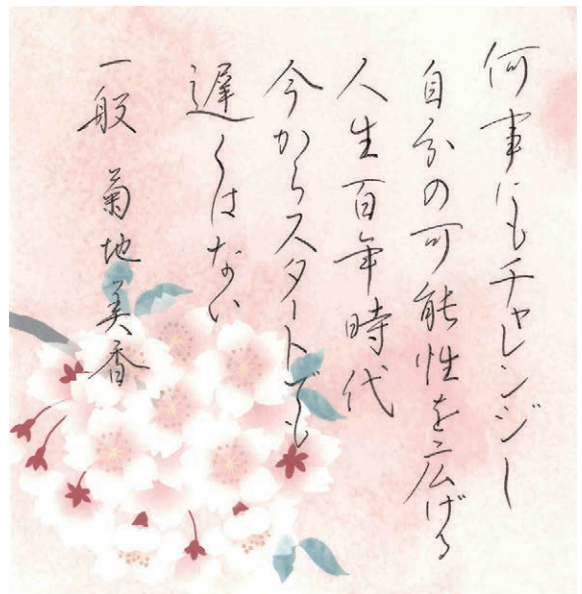 何事にもチャレンジし
自分の可能性を広げる
人生百年時代
今からスタートでも
遅くはない
一般 菊地美香